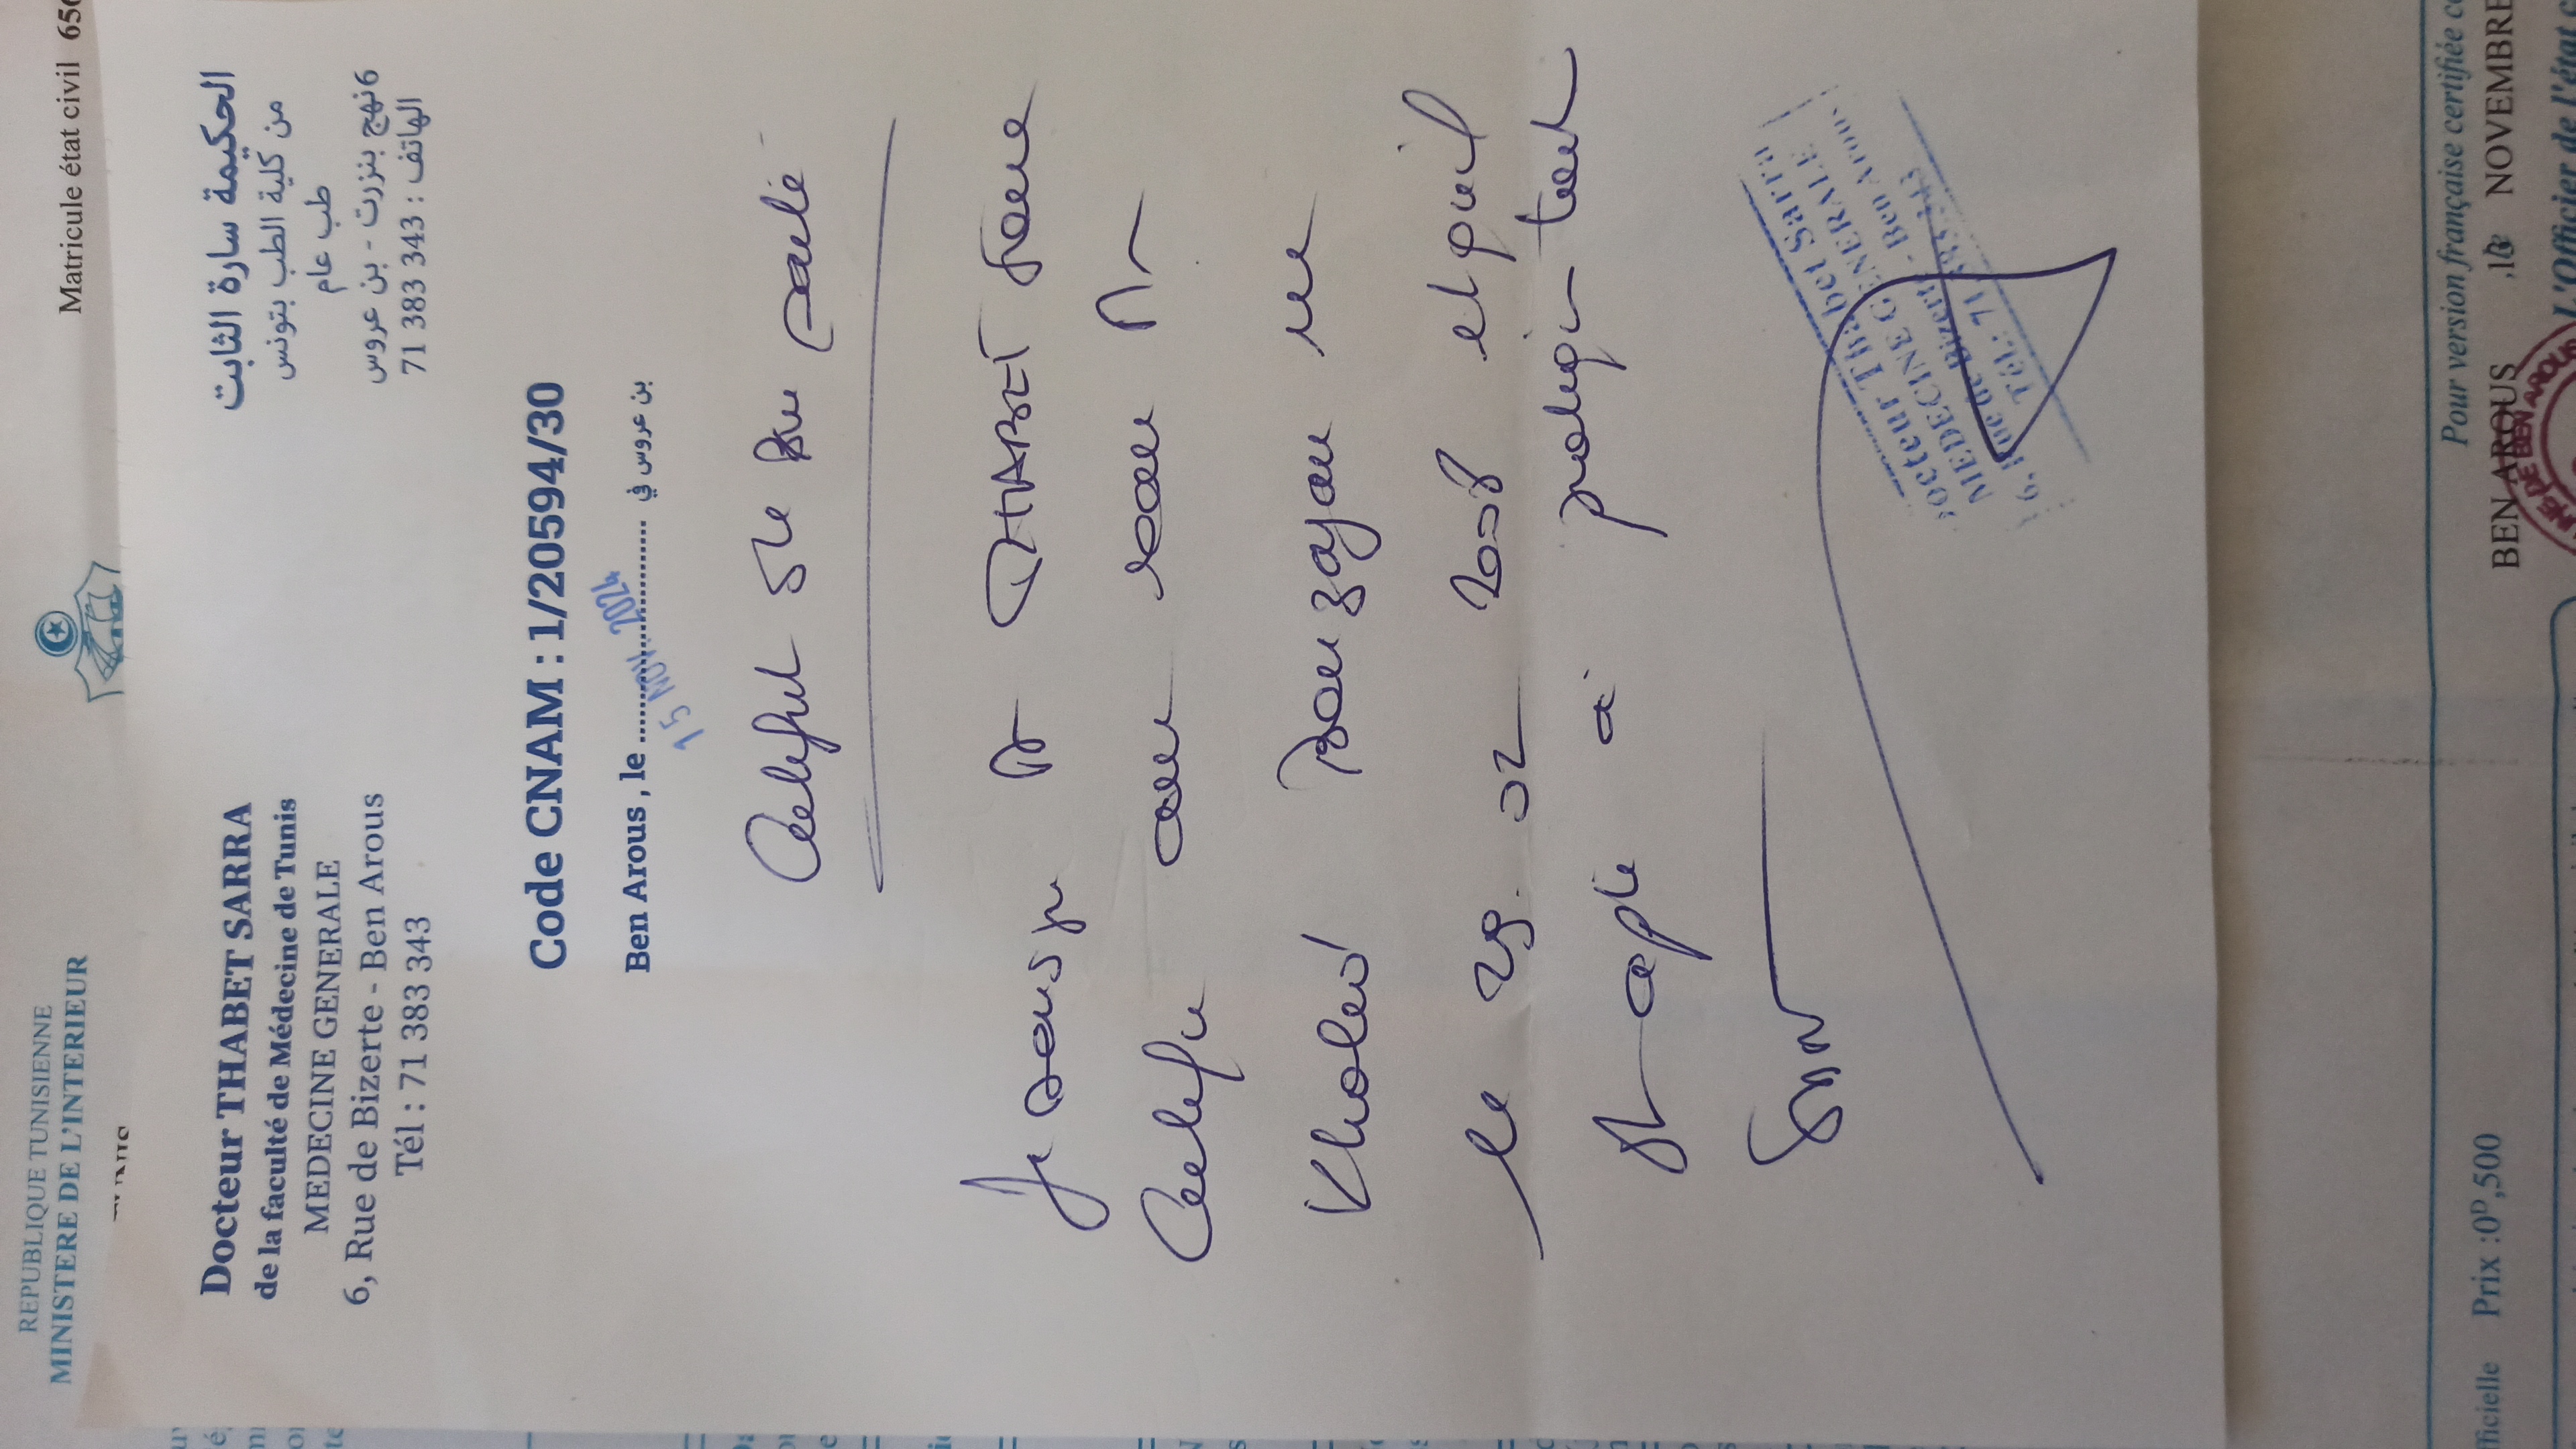 REPUBLIQUE TUNISIENNE
MINISTERE DE L'INTERIEUR
Matricule état civil 656
Docteur THABET SARRA
de la faculté de Médecine de Tunis
MEDECINE GENERALE
6, Rue de Bizerte - Ben Arous
Tél : 71 383 343
الحكيمة سارة الثابت
من كلية الطب بتونس
طب عام
6 نهج بنزرت - بن عروس
الهاتف : 343 383 71
Code CNAM : 1/20594/30
Ben Arous , le 15 NOV. 2024 بن عروس في
Je Dr THABET Sarra
Certifie avoir Mr
Khaled né
le 29. 02 2008 et qu'il
est apte à pratiquer tout
Sport
Docteur Thabet Sarra
MEDECINE GENERALE
6, Rue de Bizerte - Ben Arous
Tél.: 71 383 343
fficielle Prix :0ᴰ,500
Pour version française certifiée
BEN AROUS NOVEMBRE
L'Officier de l'état
DE BEN AROUS